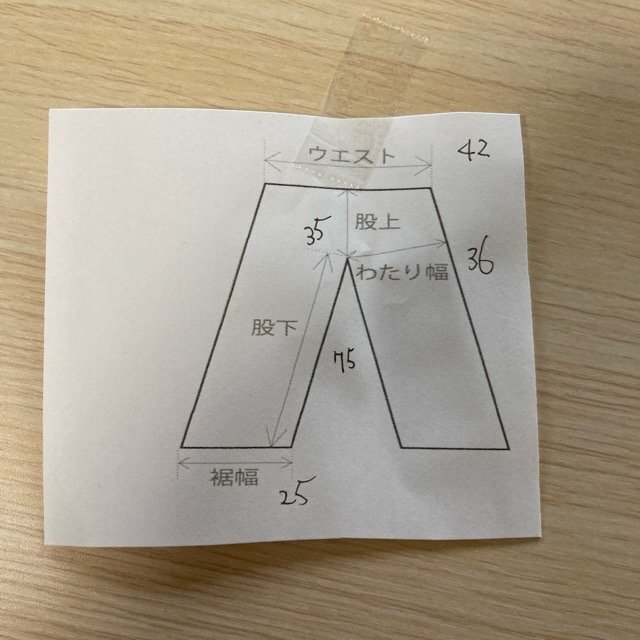 ウエスト
42
股上
35
わたり幅
36
股下
75
裾幅
25